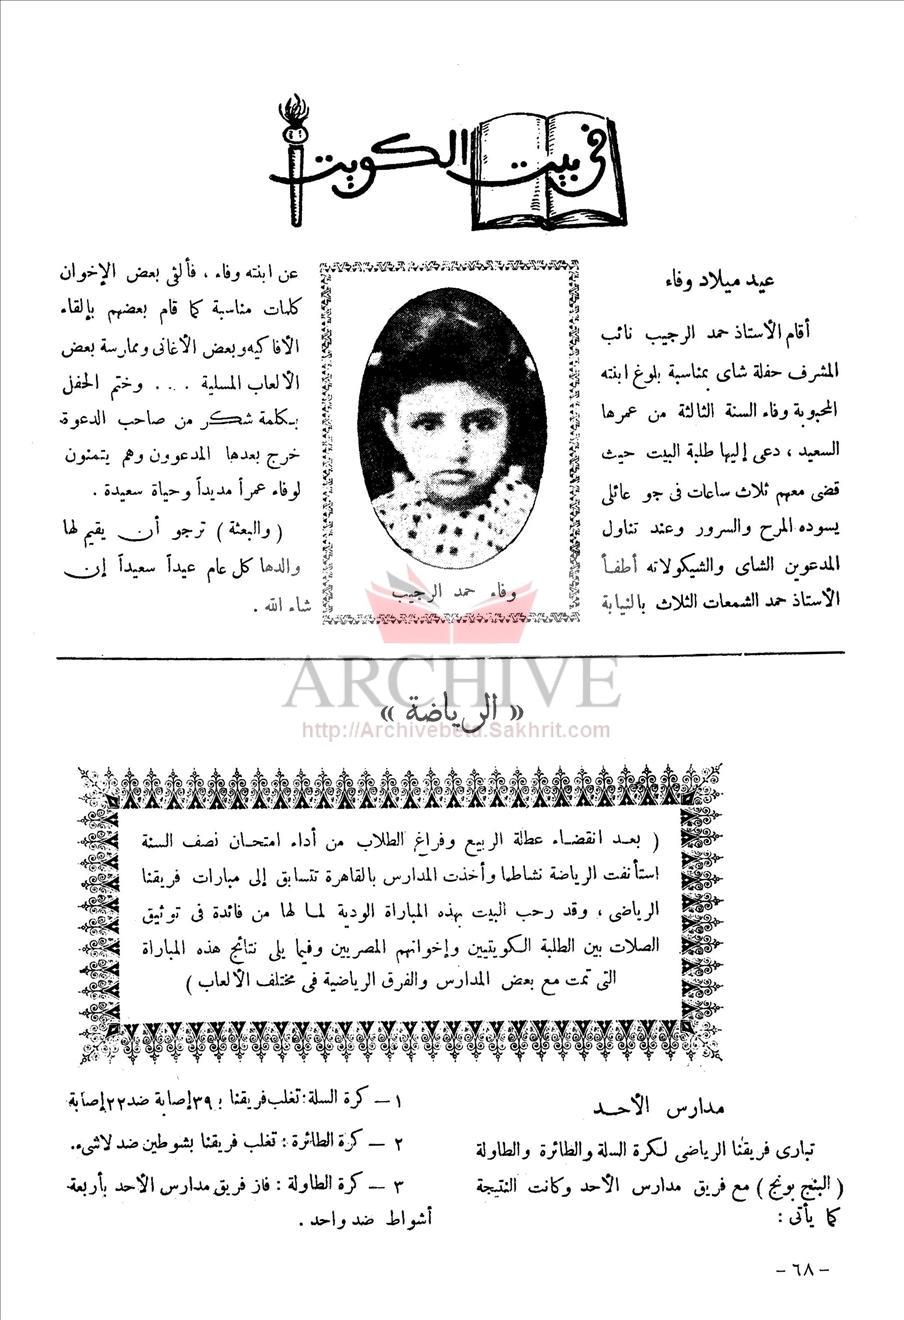 في بيت الكويت
عيد ميلاد وفاء
أقام الأستاذ حمد الرجيب نائب
المشرف حفلة شاى بمناسبة بلوغ ابنته
المحبوبة وفاء السنة الثالثة من عمرها
السعيد ، دعى إليها طلبة البيت حيث
قضى معهم ثلاث ساعات فى جو عائلى
يسوده المرح والسرور وعند تناول
المدعوين الشاى والشيكولاته أطفأ
الأستاذ حمد الشمعات الثلاث بالنيابة
وفاء حمد الرجيب
عن ابنته وفاء ، فألقى بعض الإخوان
كلمات مناسبة كما قام بعضهم بإلقاء
الأفاكيه وبعض الأغانى وممارسة بعض
الألعاب المسلية . . . وختم الحفل
بكلمة شكر من صاحب الدعوة
خرج بعدها المدعوون وهم يتمنون
لوفاء عمراً مديداً وحياة سعيدة .
( والبعثة ) ترجو أن يقيم لها
والدها كل عام عيداً سعيداً إن
شاء الله .
ARCHIVE
http://Archivebeta.Sakhrit.com
« الرياضة »
( بعد انقضاء عطلة الربيع وفراغ الطلاب من أداء امتحان نصف السنة
استأنفت الرياضة نشاطها وأخذت المدارس بالقاهرة تتسابق إلى مبارات فريقنا
الرياضى ، وقد رحب البيت بهذه المباراة الودية لما لها من فائدة فى توثيق
الصلات بين الطلبة الكويتيين وإخوانهم المصريين وفيما يلى نتائج هذه المباراة
التى تمت مع بعض المدارس والفرق الرياضية فى مختلف الألعاب )
مدارس الأحد
تبارى فريقنا الرياضى لكرة السلة والطائرة والطاولة
( البنج بونج ) مع فريق مدارس الأحد وكانت النتيجة
كما يأتى :
١ — كرة السلة : تغلب فريقنا بـ ٣٩ إصابة ضد ٢٢ إصابة
٢ — كرة الطائرة : تغلب فريقنا بشوطين ضد لاشىء .
٣ — كرة الطاولة : فاز فريق مدارس الأحد بأربعة
أشواط ضد واحد .
- ٦٨ -